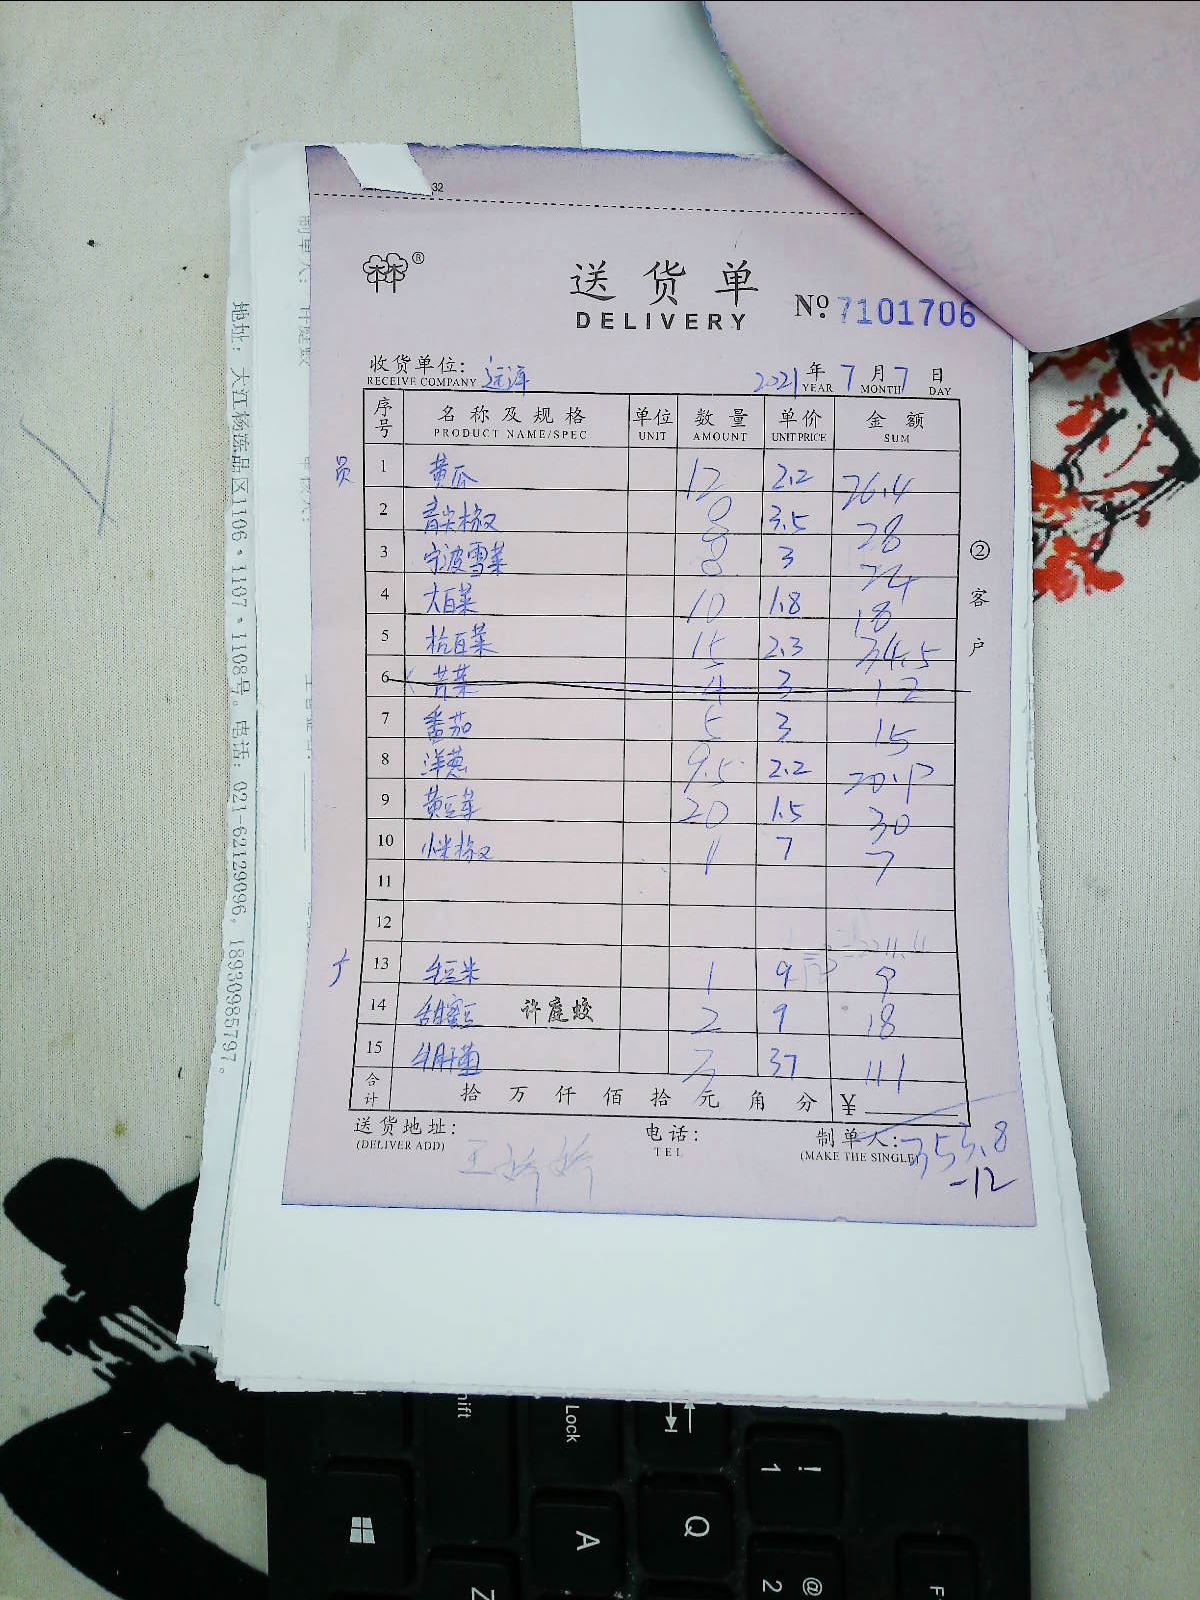 32
®
送货单
DELIVERY
No. 7101706
收货单位: 远洋
RECEIVE COMPANY
2021 年 7 月 7 日
YEAR MONTH DAY
序号 名称及规格 单位 数量 单价 金额
PRODUCT NAME/SPEC UNIT AMOUNT UNIT PRICE SUM
员 1 黄瓜 12 2.2 26.4
2 青尖椒 8 3.5 28
3 宁波雪菜 8 3 24
4 大白菜 10 1.8 18
5 杭白菜 15 2.3 34.5
6 芹菜 4 3 12
7 番茄 5 3 15
8 洋葱 9.5 2.2 20.9
9 黄豆芽 20 1.5 30
10 小米椒 1 7 7
11
12
13 毛豆米 1 9 9
14 甜蜜豆 许庭蛟 2 9 18
15 牛肝菌 3 37 111
合计 拾 万 仟 佰 拾 元 角 分 ¥
② 客户
送货地址: 电话: 制单人: 353.8
(DELIVER ADD) TEL (MAKE THE SINGLE)
-12
地址: 大江杨
品区1106·1107·1108号。 电话: 021-62129096, 18930985797。
制单人:
Shift
Lock
! 1
Q
A
@ 2
Z
F